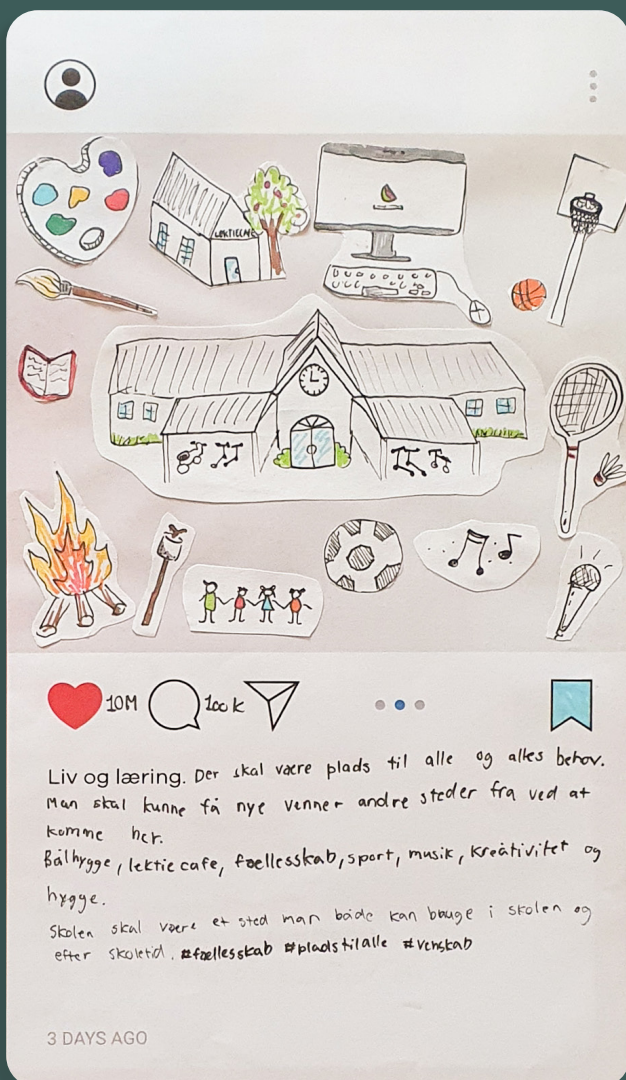 LEKTIECAFE
10M
100k
Liv og læring. Der skal være plads til alle og alles behov.
Man skal kunne få nye venner andre steder fra ved at
komme her.
Bålhygge, lektiecafe, fællesskab, sport, musik, kreativitet og
hygge.
Skolen skal være et sted man både kan bauge i skolen og
efter skoletid. #fællesskab #pladstilalle #venskab
3 DAYS AGO